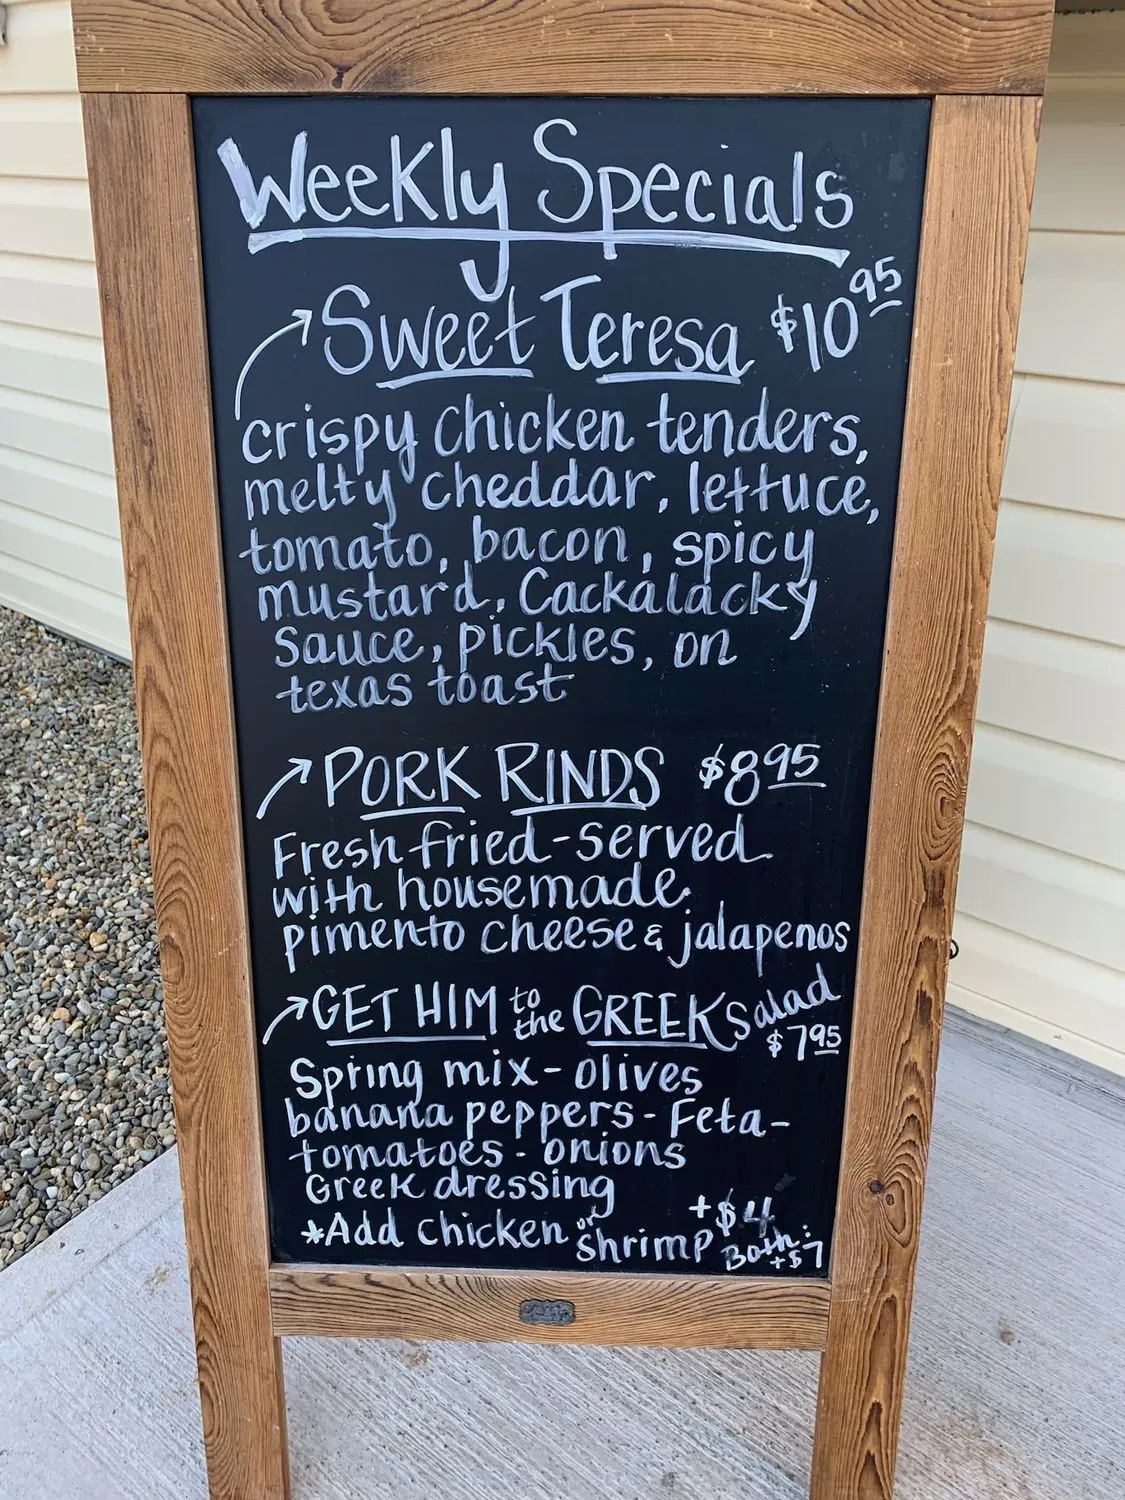 Weekly Specials
Sweet Teresa $10.95
crispy chicken tenders,
melty cheddar, lettuce,
tomato, bacon, spicy
mustard, Cackalacky
sauce, pickles, on
texas toast
PORK RINDS $8.95
Fresh fried-served
with housemade
pimento cheese & jalapenos
GET HIM to the GREEK Salad
$7.95
Spring mix - olives
banana peppers - Feta -
tomatoes - onions
Greek dressing
*Add chicken or shrimp +$4
Both: +$7